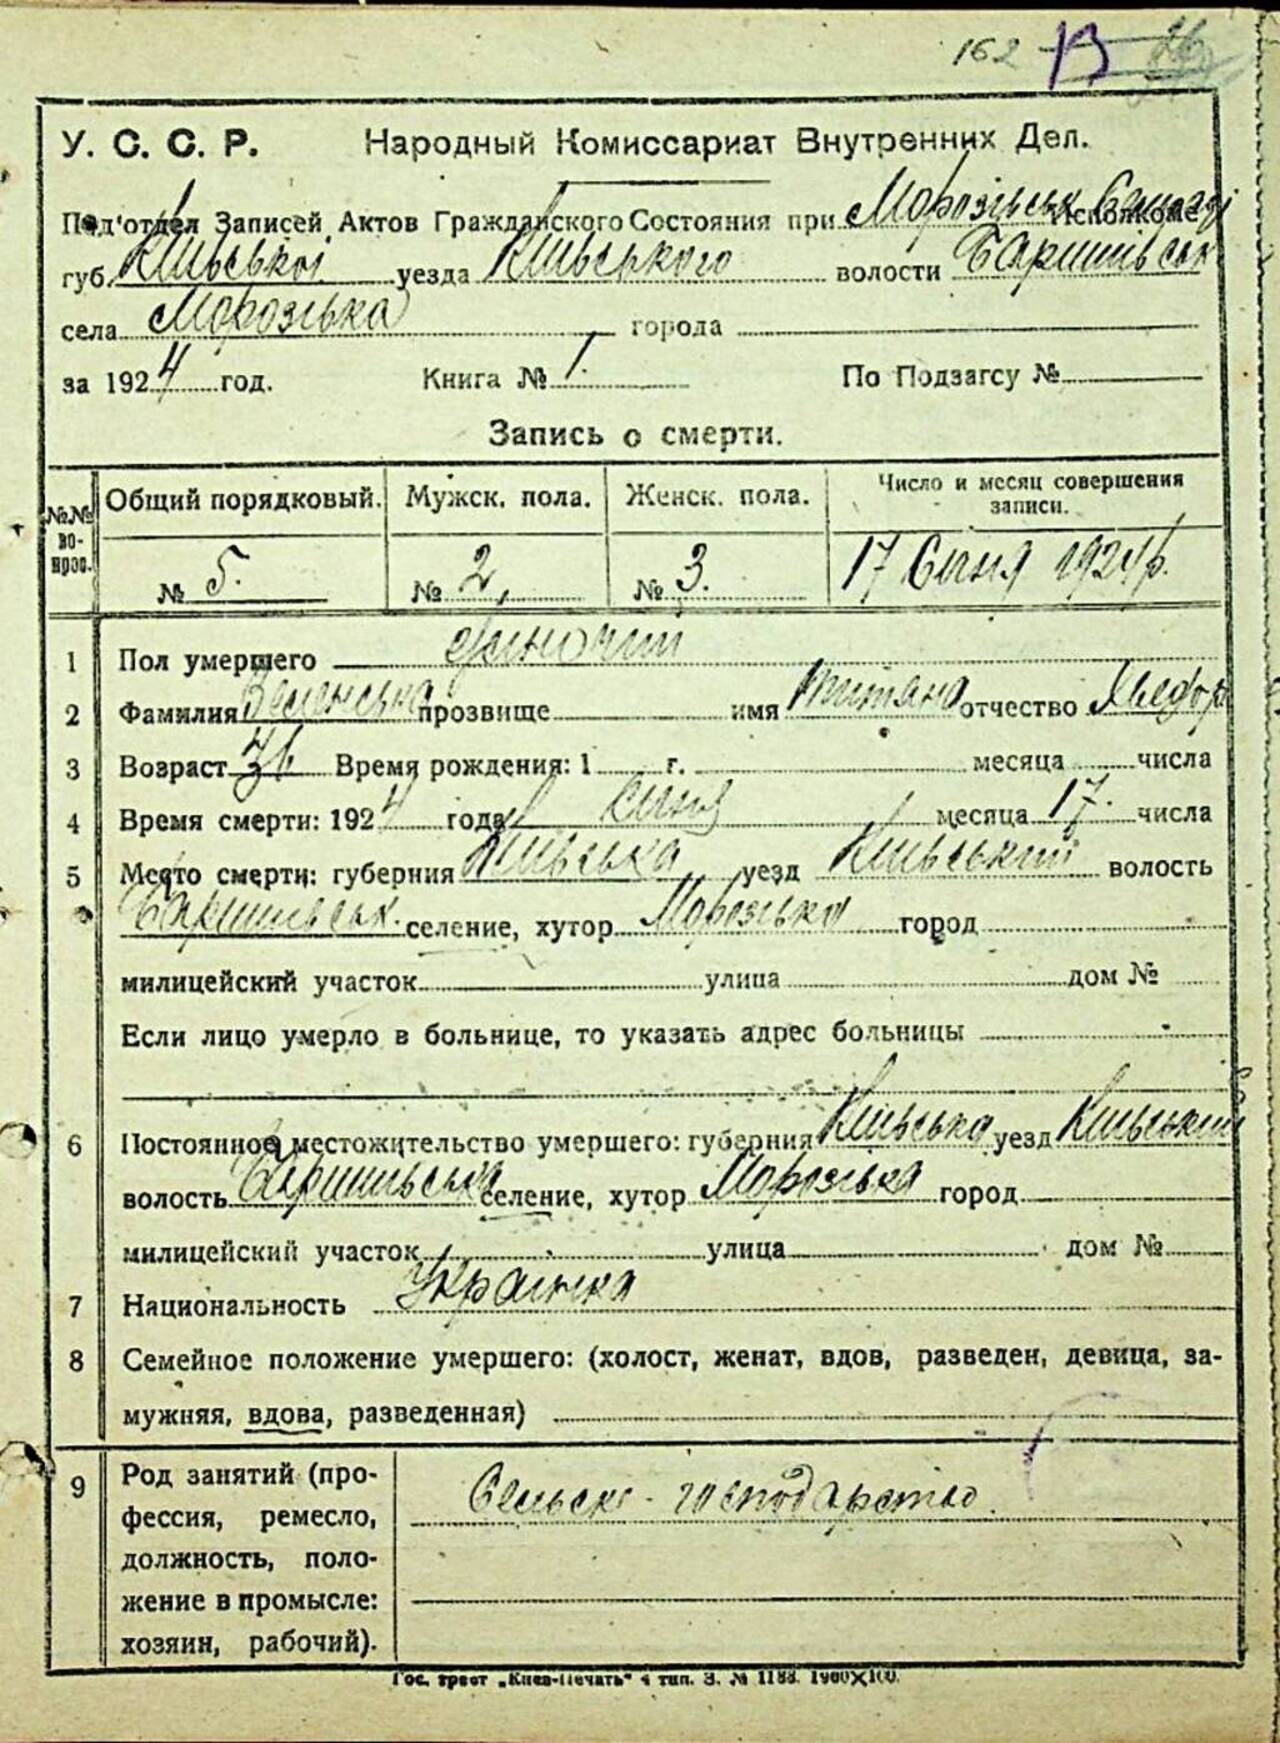 162 13
У. С. С. Р. Народный Комиссариат Внутренних Дел.
Под'отдел Записей Актов Гражданского Состояния при Морозівськ. Исполкоме
губ. Київської уезда Київського волости Баришівськ
села Морозівка города
за 1924 год. Книга № 1. По Подзагсу №
Запись о смерти.
№№ вопрос. Общий порядковый. Мужск. пола. Женск. пола. Число и месяц совершения записи.
№ 5. № 2, № 3. 17 Січня 1924 р.
1 Пол умершего жіночий
2 Фамилия прозвище имя Титяна отчество Хведор
3 Возраст Время рождения: 1 г. месяца числа
4 Время смерти: 1924 года Січня месяца 17. числа
5 Место смерти: губерния Київська уезд Київський волость
Баришівськ. селение, хутор Морозівка город
милицейский участок улица дом №
Если лицо умерло в больнице, то указать адрес больницы
6 Постоянное местожительство умершего: губерния Київська уезд Київський
волость Баришівська селение, хутор Морозівка город
милицейский участок улица дом №
7 Национальность Українка
8 Семейное положение умершего: (холост, женат, вдов, разведен, девица, за-
мужняя, вдова, разведенная)
9 Род занятий (про-
фессия, ремесло,
должность, поло-
жение в промысле:
хозяин, рабочий).
Сельске - господарство.
Гос. трест „Киев-Печать" 4 тип. З. № 1188. 1900×100.